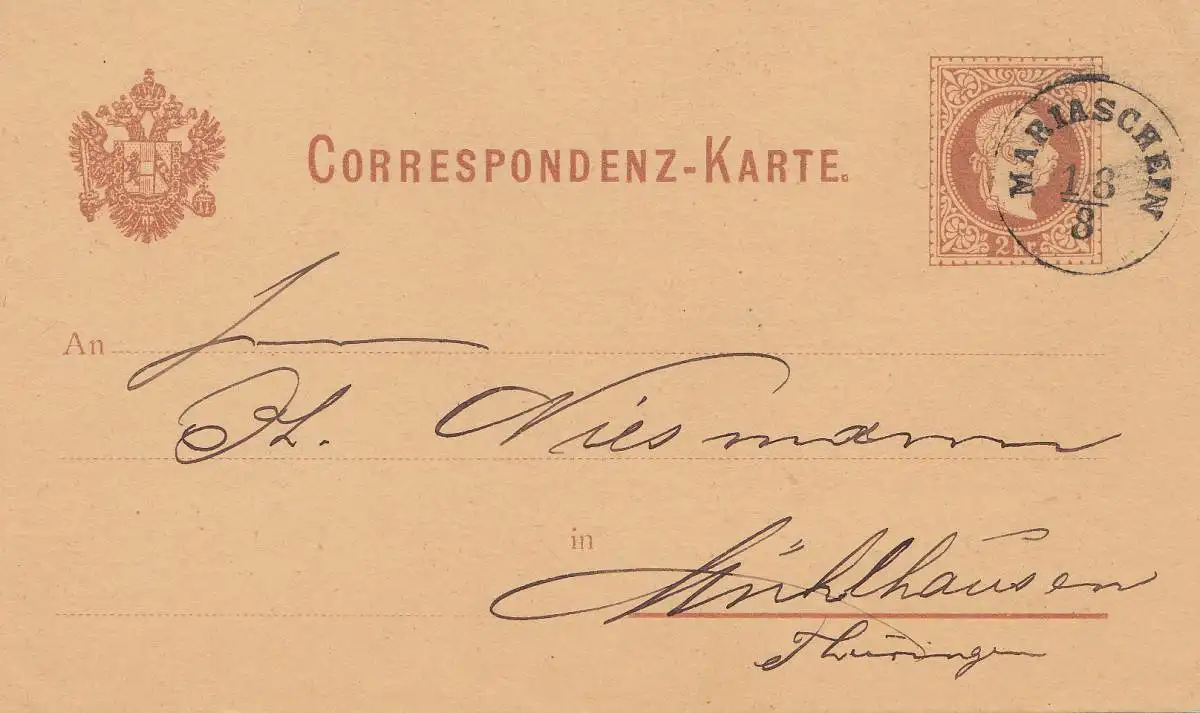 CORRESPONDENZ-KARTE.
2 Kr.
MARIASCHEIN
18/8
An Herrn
Th. Niesmann
in Mühlhausen
Thüringen